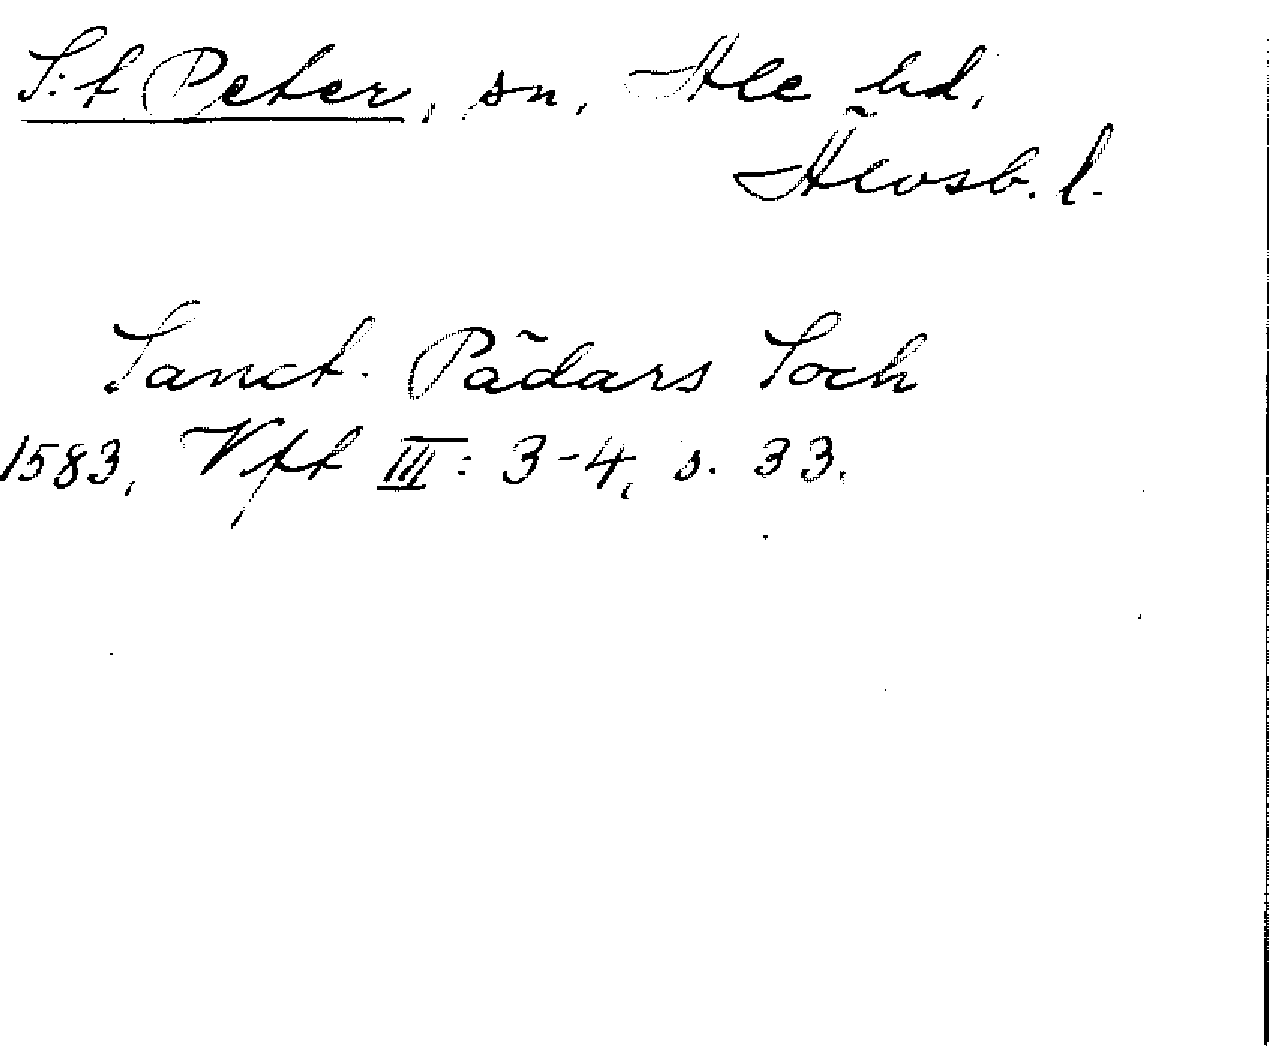 S:t Peter, sn, Ale hd,
Älvsb. l.
Sanct. Pädars Soch
1583, Vft III: 3-4, s. 33.